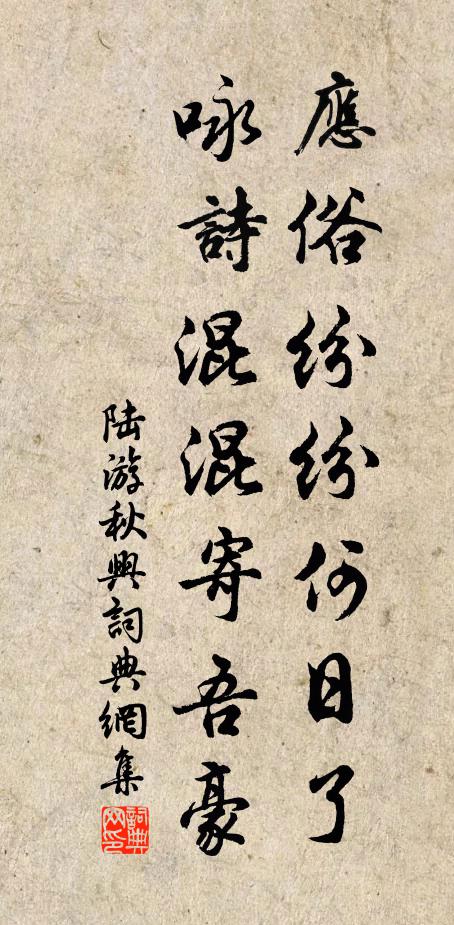 應俗紛紛何日了
咏詩混混寄吾豪
陆游秋興詞典網集
詞典網印